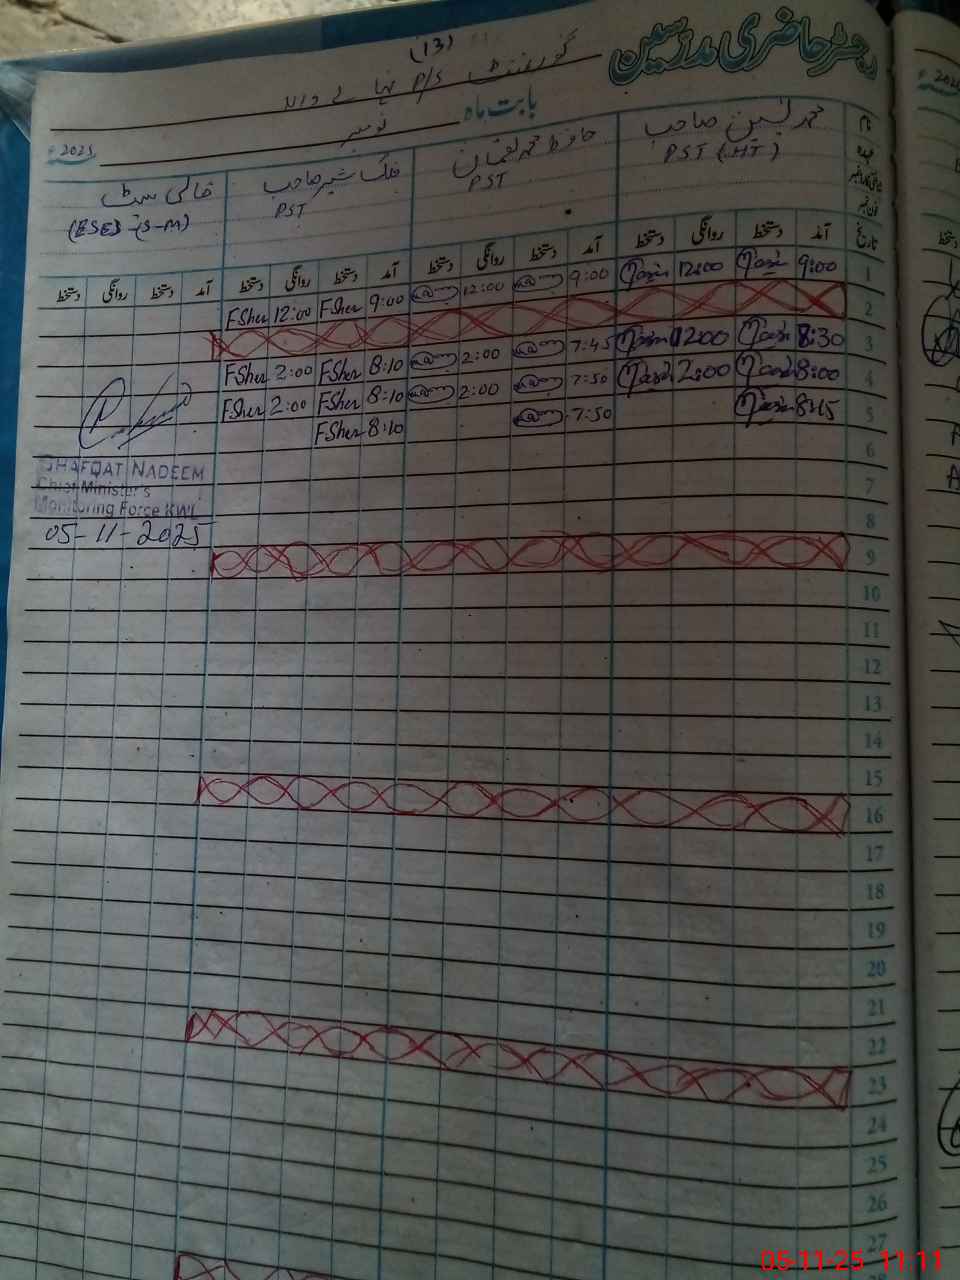 رجسٹر حاضری مدرسین
(13)
گورنمنٹ P/S
بابت ماہ نومبر 2025ء
نام محمد یٰسین صاحب حافظ محمد نعمان فلک شیر صاحب خالی سیٹ
عہدہ PST (HT) PST PST (ESE) (S-M)
تاریخ آمد دستخط روانگی دستخط آمد دستخط روانگی دستخط آمد دستخط روانگی دستخط آمد دستخط روانگی دستخط
1 9:00 12:00 9:00 12:00 9:00 FSher 12:00 FSher
2
3 8:30 1200 7:45 2:00 8:10 FSher 2:00 FSher
4 8:00 2:00 7:50 2:00 8:10 FSher 2:00 FSher
5 8:15 7:50 8:10 FSher
6
7
8
9
10
11
12
13
14
15
16
17
18
19
20
21
22
23
24
25
26
27
SHAFQAT NADEEM
Chief Minister's
Monitoring Force KWL
05-11-2025
05-11-25 11:11